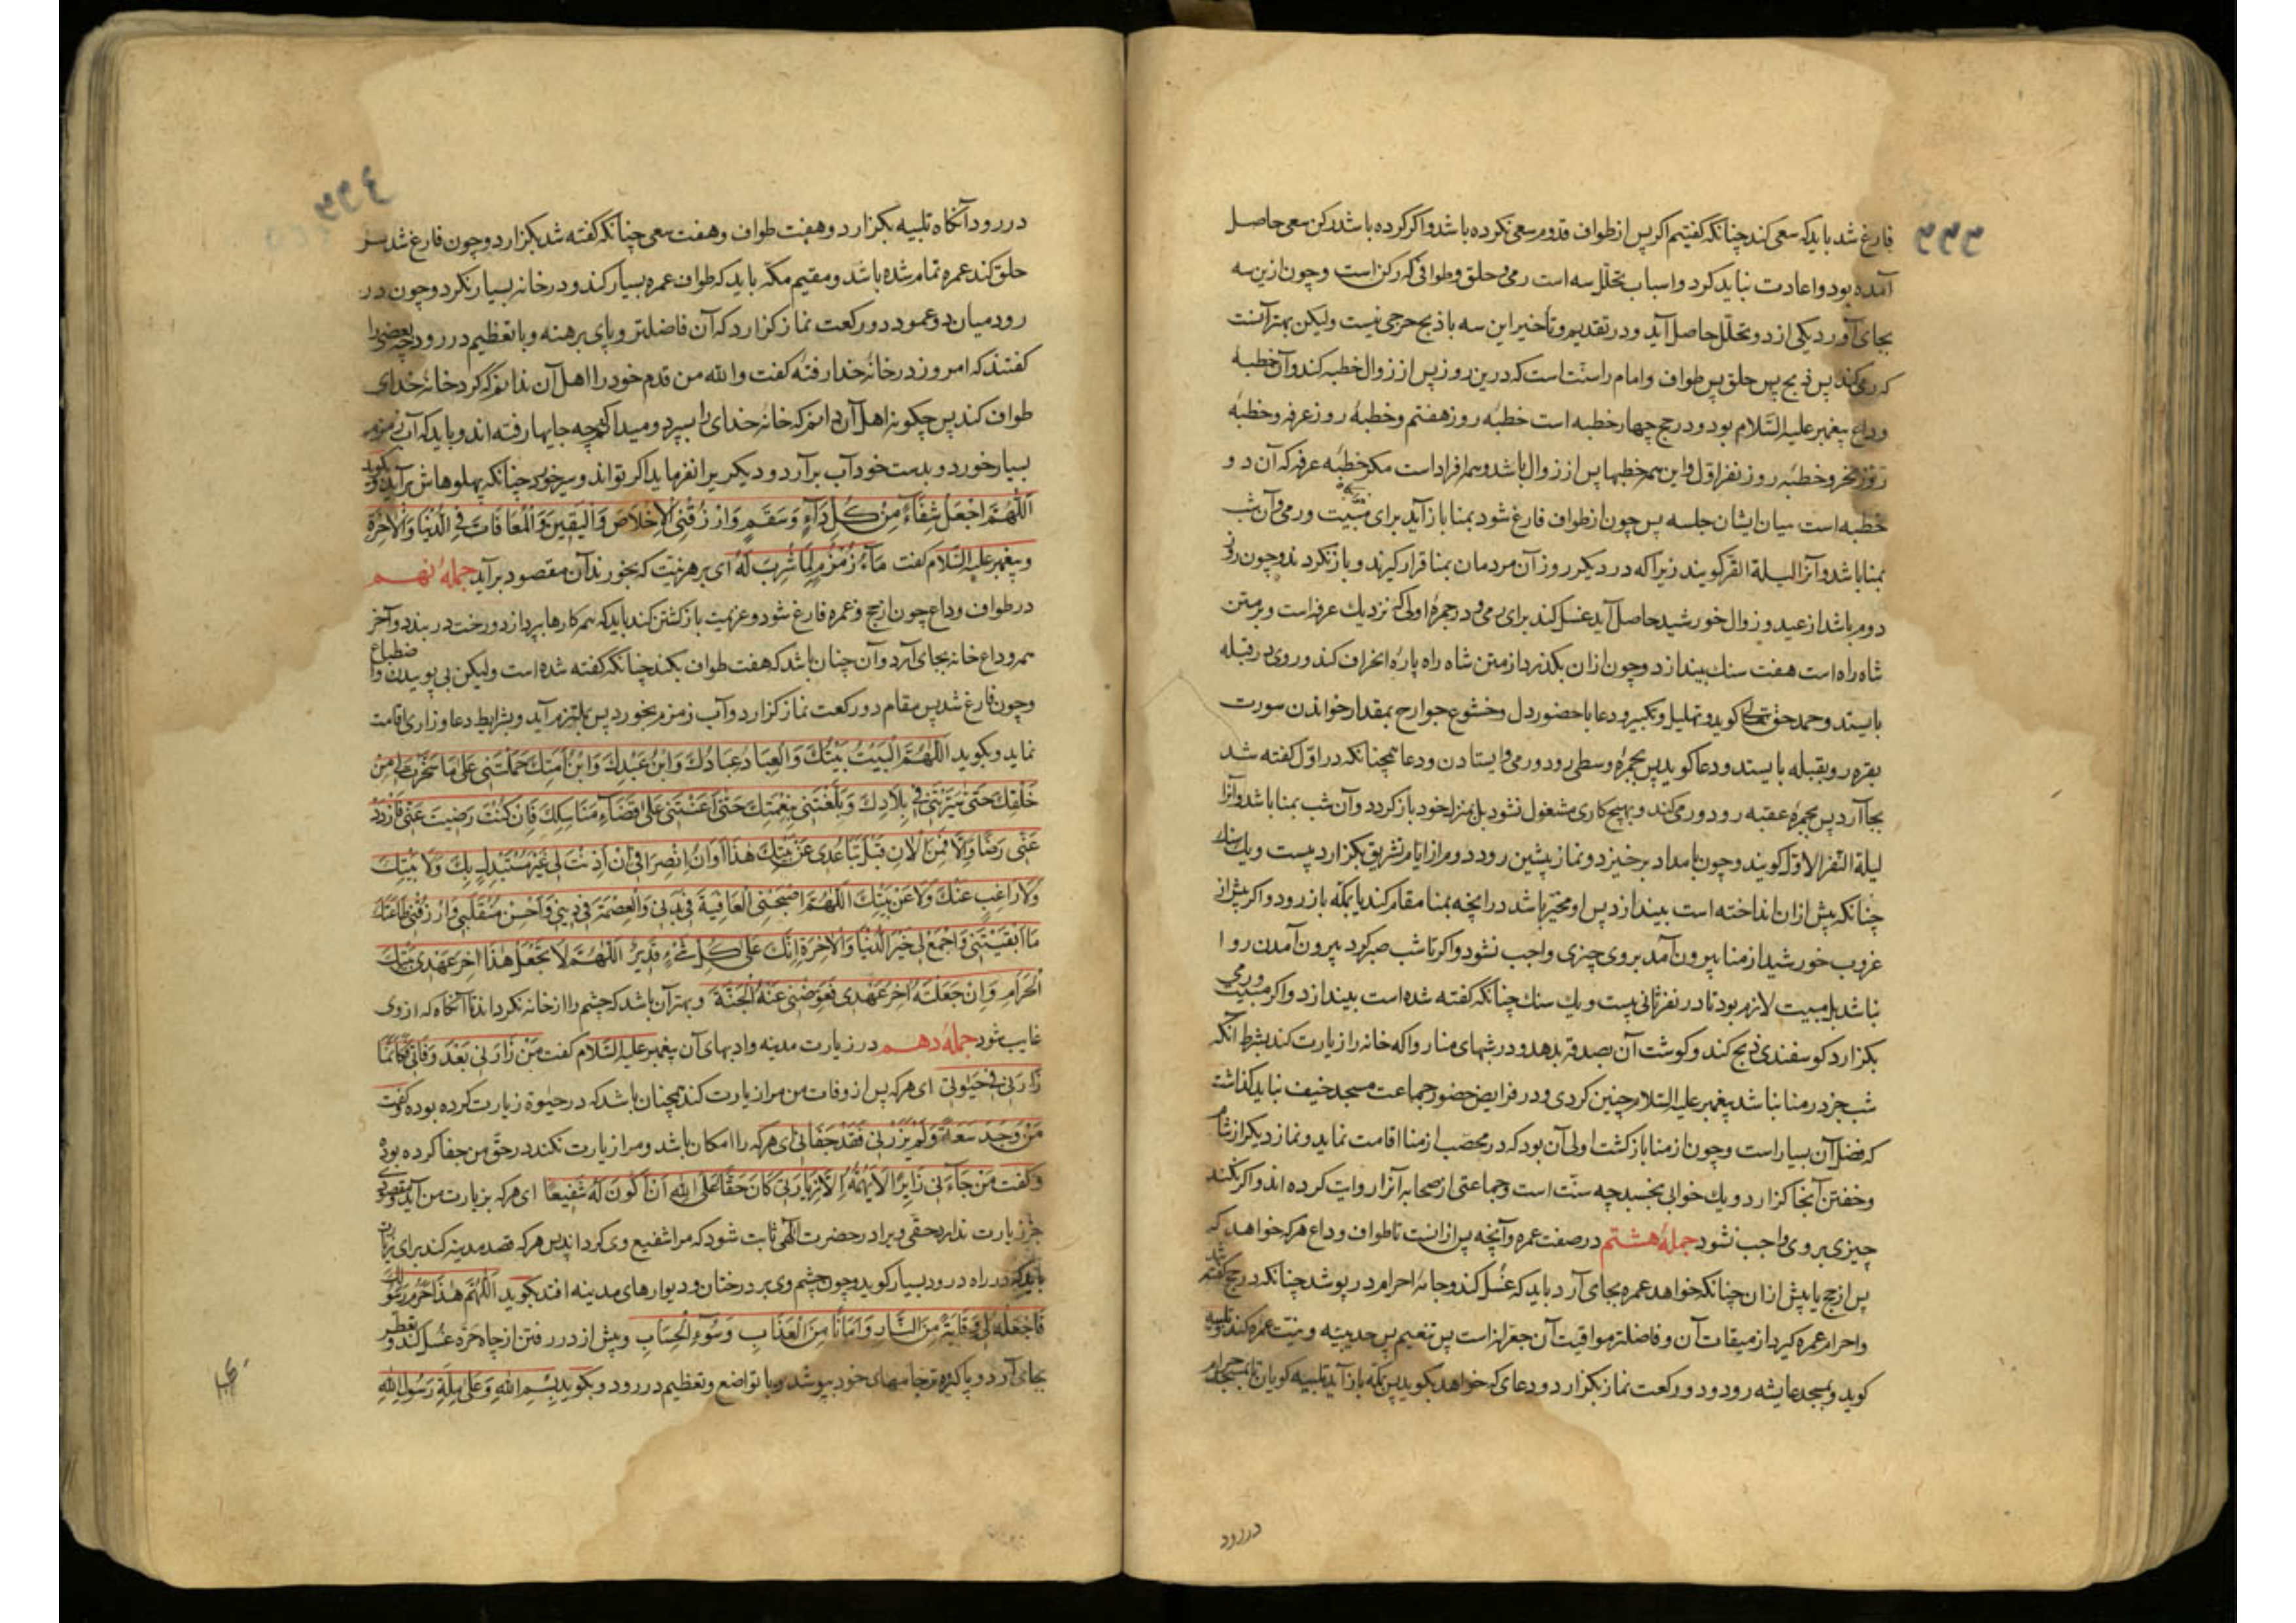 ۳۳۳
فارغ شد باید که سعی کند چنانکه گفتیم اگر پس از طواف قدوم سعی نکرده باشد و اگر کرده باشد رکن سعی حاصل
آمده بود و اعادت نباید کرد و اسباب تحلل سه است رمی و حلق و طوافی که رکن است و چون ازین سه
بجای آورد یکی از دو تحلل حاصل آید و در تقدیم و تأخیر این سه با ذبح حرجی نیست ولیکن بهتر آنست
که رمی کند پس ذبح پس حلق پس طواف و امام را سنّت است که درین روز پس از زوال خطبه کند و آن خطبهٔ
وداع پیغمبر علیه السّلام بود و در حج چهار خطبه است خطبهٔ روز هفتم و خطبهٔ روز عرفه و خطبهٔ
روز نحر و خطبهٔ روز نفر اول و این همه خطبها پس از زوال باشد و همه افراد است مگر خطبهٔ عرفه که آن دو
خطبه است میان ایشان جلسه پس چون از طواف فارغ شود بمنا باز آید برای مبیت و رمی و آن شب
بمنا باشد و آنرا لیلة القر گویند زیرا که در دیگر روز آن مردمان بمنا قرار گیرند و باز نگردند و چون روز
دوم باشد از عید و زوال خورشید حاصل آید غسل کند برای رمی و در جمرهٔ اولی که نزدیک عرفه است و بر متن
شاه راه است هفت سنک بیندازد و چون ازان بگذرد از متن شاه راه پارهٔ انحراف کند و روی در قبله
بایستد و حمد حق تعالی گوید و تهلیل و تکبیر و دعا با حضور دل و خشوع جوارح بمقدار خواندن سورت
بقره رو بقبله بایستد و دعا گوید پس بجمرهٔ وسطی رود و رمی و ایستادن و دعا همچنانکه در اوّل گفته شد
بجا آرد پس بجمرهٔ عقبه رود و رمی کند و بهیچ کاری مشغول نشود بل بمنزل خود باز گردد و آن شب بمنا باشد و آنرا
لیلة النفر الاوّل گویند و چون بامداد برخیزد و نماز پیشین روز دوم از ایام تشریق بگزارد بیست و یک سنک
چنانکه پیش ازان انداخته است بیندازد پس او مخیّر باشد در آنچه بمنا مقام کند یا بمکّه باز رود و اگر پیش از
غروب خورشید از منا بیرون آمد بر وی چیزی واجب نشود و اگر تا شب صبر کرد بیرون آمدن روا
نباشد بل مبیت لازم بود تا در نفر ثانی بیست و یک سنک چنانکه گفته شده است بیندازد و اگر مبیت و رمی
بگزارد گوسفندی ذبح کند و گوشت آن بصدقه بدهد و در شبهای منا روا که خانه را زیارت کند بشرط آنکه
شب جز در منا نباشد پیغمبر علیه السّلام چنین کردی و در فرایض حضور جماعت مسجد خیف نباید گذاشت
که فضل آن بسیار است و چون از منا باز گشت اولی آن بود که در محصّب از منا اقامت نماید و نماز دیگر از شام
و خفتن آنجا گزارد و یک خوابی بخسبد چه سنّت است و جماعتی از صحابه آنرا روایت کرده اند و اگر نکند
چیزی بر وی واجب نشود جملهٔ هشتم در صفت عمره و آنچه پس ازانست تا طواف وداع هر که خواهد که
پس از حج یا پیش ازان چنانکه خواهد عمره بجای آرد باید که غسل کند و جامهٔ احرام در پوشد چنانکه در حج گفته شد
و احرام عمره گیرد از میقات آن و فاضلتر مواقیت آن جعرانه است پس تنعیم پس حدیبیه و نیت عمره کند و تلبیه
گوید و بمسجد عایشه رود و دو رکعت نماز بگزارد و دعای که خواهد بگوید پس بمکّه باز آید تلبیه گویان تا بمسجد حرام
در رود
۳۳۴
در رود آنگاه تلبیه بگزارد و هفت طواف و هفت سعی چنانکه گفته شد بگزارد و چون فارغ شد سر
حلق کند عمره تمام شده باشد و مقیم مکّه باید که طواف عمره بسیار کند و در خانه بسیار نگرد و چون در
رود میان دو عمود دو رکعت نماز گزارد که آن فاضلتر و پای برهنه و با تعظیم در رود چه بعضی را
گفتند که امروز در خانهٔ خدا رفتهٔ گفت والله من قدم خود را اهل آن ندانم که گرد خانهٔ خدای
طواف کند پس چگونه اهل آن دانم که خانهٔ خدای را بسپرد و میدانم که بچه جایها رفته اند و باید که آب زمزم
بسیار خورد و بدست خود آب برآرد و دیگر یرا نفرماید اگر تواند و سیر خورد چنانکه پهلوهاش برآید و بگوید
اَللّٰهُمَّ اجْعَلْهُ شِفَاءً مِنْ كُلِّ دَآءٍ وَسَقَمٍ وَارْزُقْنِي الْاِخْلَاصَ وَالْيَقِينَ وَالْمُعَافَاتَ فِي الدُّنْيَا وَالْاٰخِرَةِ
و پیغمبر علیه السّلام گفت مَآءُ زَمْزَمٍ لِمَا شُرِبَ لَهُ ای بر هر نیت که بخورند آن مقصود برآید جملهٔ نهم
در طواف وداع چون از حج و عمره فارغ شود و عزیمت باز گشتن کند باید که همه کارها بپردازد و رخت در بندد و آخر
همه وداع خانه بجای آرد و آن چنان باشد که هفت طواف بکند چنانکه گفته شده است ولیکن بی پوییدن و اضطباع
و چون فارغ شد پس مقام دو رکعت نماز گزارد و آب زمزم بخورد پس بملتزم آید و بشرایط دعا و زاری اقامت
نماید و بگوید اَللّٰهُمَّ الْبَيْتُ بَيْتُكَ وَالْعِبَادُ عِبَادُكَ وَابْنُ عَبْدِكَ وَابْنُ اَمَتِكَ حَمَلْتَنِي عَلٰى مَا سَخَّرْتَ لِي مِنْ
خَلْقِكَ حَتّٰى سَيَّرْتَنِي فِي بِلَادِكَ وَبَلَّغْتَنِي بِنِعْمَتِكَ حَتّٰى اَعَنْتَنِي عَلٰى قَضَآءِ مَنَاسِكِكَ فَاِنْ كُنْتَ رَضِيتَ عَنِّي فَازْدَدْ
عَنِّي رِضًا وَاِلَّا فَمِنَ الْاٰنِ قَبْلَ تَبَاعُدِي عَنْ بَيْتِكَ هٰذَا اَوَانُ اِنْصِرَافِي اِنْ اَذِنْتَ لِي غَيْرَ مُسْتَبْدِلٍ بِكَ وَلَا بَيْتِكَ
وَلَا رَاغِبٍ عَنْكَ وَلَا عَنْ بَيْتِكَ اَللّٰهُمَّ اصْحَبْنِي الْعَافِيَةَ فِي بَدَنِي وَالْعِصْمَةَ فِي دِينِي وَاَحْسِنْ مُنْقَلَبِي وَارْزُقْنِي طَاعَتَكَ
مَا اَبْقَيْتَنِي وَاجْمَعْ لِي خَيْرَ الدُّنْيَا وَالْاٰخِرَةِ اِنَّكَ عَلٰى كُلِّ شَيْءٍ قَدِيرٌ اَللّٰهُمَّ لَا تَجْعَلْ هٰذَا اٰخِرَ عَهْدِي بِبَيْتِكَ
الْحَرَامِ وَاِنْ جَعَلْتَهُ اٰخِرَ عَهْدِي فَعَوِّضْنِي عَنْهُ الْجَنَّةَ و بهتر آن باشد که چشم را از خانه نگرداند تا آنگاه که از وی
غایب شود جملهٔ دهم در زیارت مدینه و ادبهای آن پیغمبر علیه السّلام گفت مَنْ زَارَنِي بَعْدَ وَفَاتِي فَكَاَنَّمَا
زَارَنِي فِي حَيٰوتِي ای هر که پس از وفات من مرا زیارت کند همچنان باشد که در حیوة زیارت کرده بود و گفت
مَنْ وَجَدَ سَعَةً وَلَمْ يَزُرْنِي فَقَدْ جَفَانِي ای هر که را امکان باشد و مرا زیارت نکند در حق من جفا کرده بود
و گفت مَنْ جَاءَنِي زَايِرًا لَا يُهِمُّهُ اِلَّا زِيَارَتِي كَانَ حَقًّا عَلَى اللهِ اَنْ اَكُونَ لَهُ شَفِيعًا ای هر که بزیارت من آید و مقصودی
جز زیارت ندارد حقی ویرا در حضرت الٰهی ثابت شود که مرا شفیع وی گرداند پس هر که قصد مدینه کند برای زیارت
باید که در راه درود بسیار گوید و چون چشم وی بر درختان و دیوارهای مدینه افتد بگوید اَللّٰهُمَّ هٰذَا حَرَمُ رَسُولِكَ
فَاجْعَلْهُ لِي وِقَايَةً مِنَ النَّارِ وَاَمَانًا مِنَ الْعَذَابِ وَسُوءِ الْحِسَابِ و پیش از در رفتن از چاه حرّه غسل کند و تعطر
بجای آرد و پاکیزه تر جامهای خود بپوشد و با تواضع و تعظیم در رود و بگوید بِسْمِ اللهِ وَعَلٰى مِلَّةِ رَسُولِ اللهِ